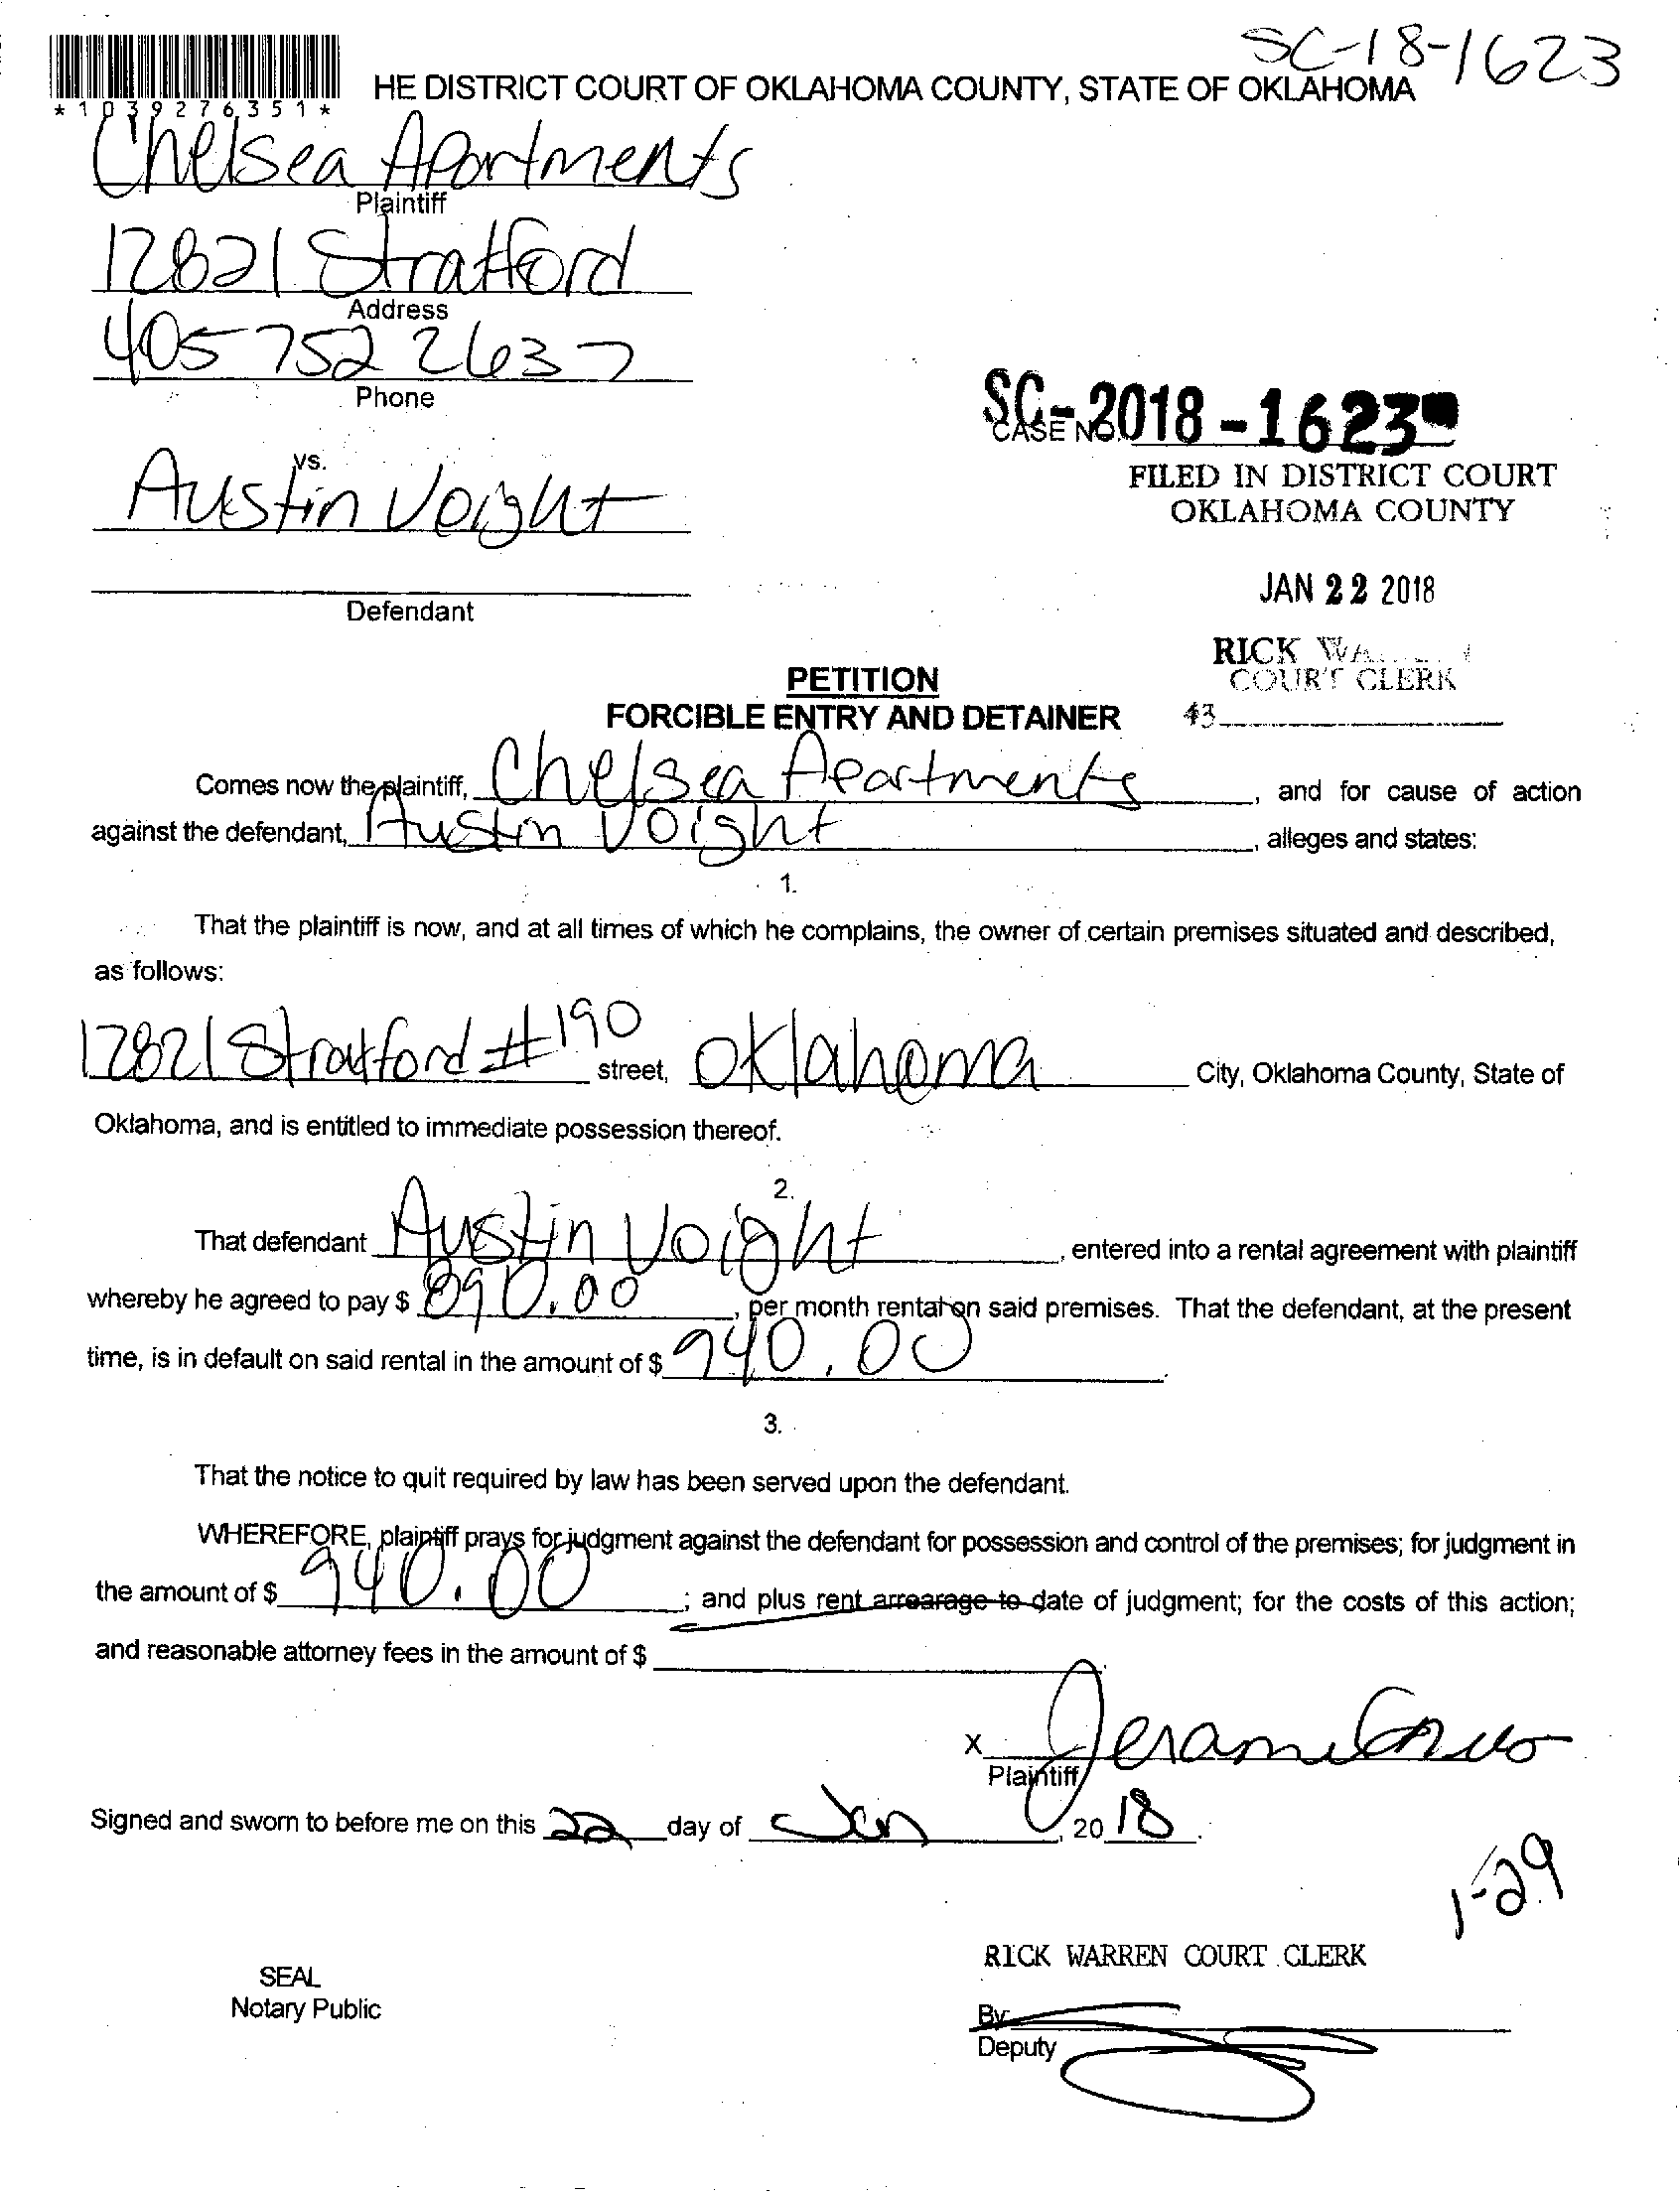 SC-18-1623
HE DISTRICT COURT OF OKLAHOMA COUNTY, STATE OF OKLAHOMA
*1039276351*
Chelsea Apartments
Plaintiff
12821 Stratford
Address
405 752 2637
Phone
SC-2018-1623
CASE NO.
vs.
Austin Voight
FILED IN DISTRICT COURT
OKLAHOMA COUNTY
JAN 22 2018
Defendant
RICK
COURT CLERK
43
PETITION
FORCIBLE ENTRY AND DETAINER
Comes now the plaintiff, Chelsea Apartments, and for cause of action
against the defendant, Austin Voight, alleges and states:
1.
That the plaintiff is now, and at all times of which he complains, the owner of certain premises situated and described,
as follows:
12821 Stratford #190 street, Oklahoma City, Oklahoma County, State of
Oklahoma, and is entitled to immediate possession thereof.
2.
That defendant Austin Voight, entered into a rental agreement with plaintiff
whereby he agreed to pay $ 890.00, per month rental on said premises. That the defendant, at the present
time, is in default on said rental in the amount of $ 940.00.
3.
That the notice to quit required by law has been served upon the defendant.
WHEREFORE, plaintiff prays for judgment against the defendant for possession and control of the premises; for judgment in
the amount of $ 940.00; and plus rent arrearage to date of judgment; for the costs of this action;
and reasonable attorney fees in the amount of $
X
Plaintiff
Signed and sworn to before me on this 22 day of Jan, 20 18.
1-29
RICK WARREN COURT CLERK
SEAL
Notary Public
By
Deputy